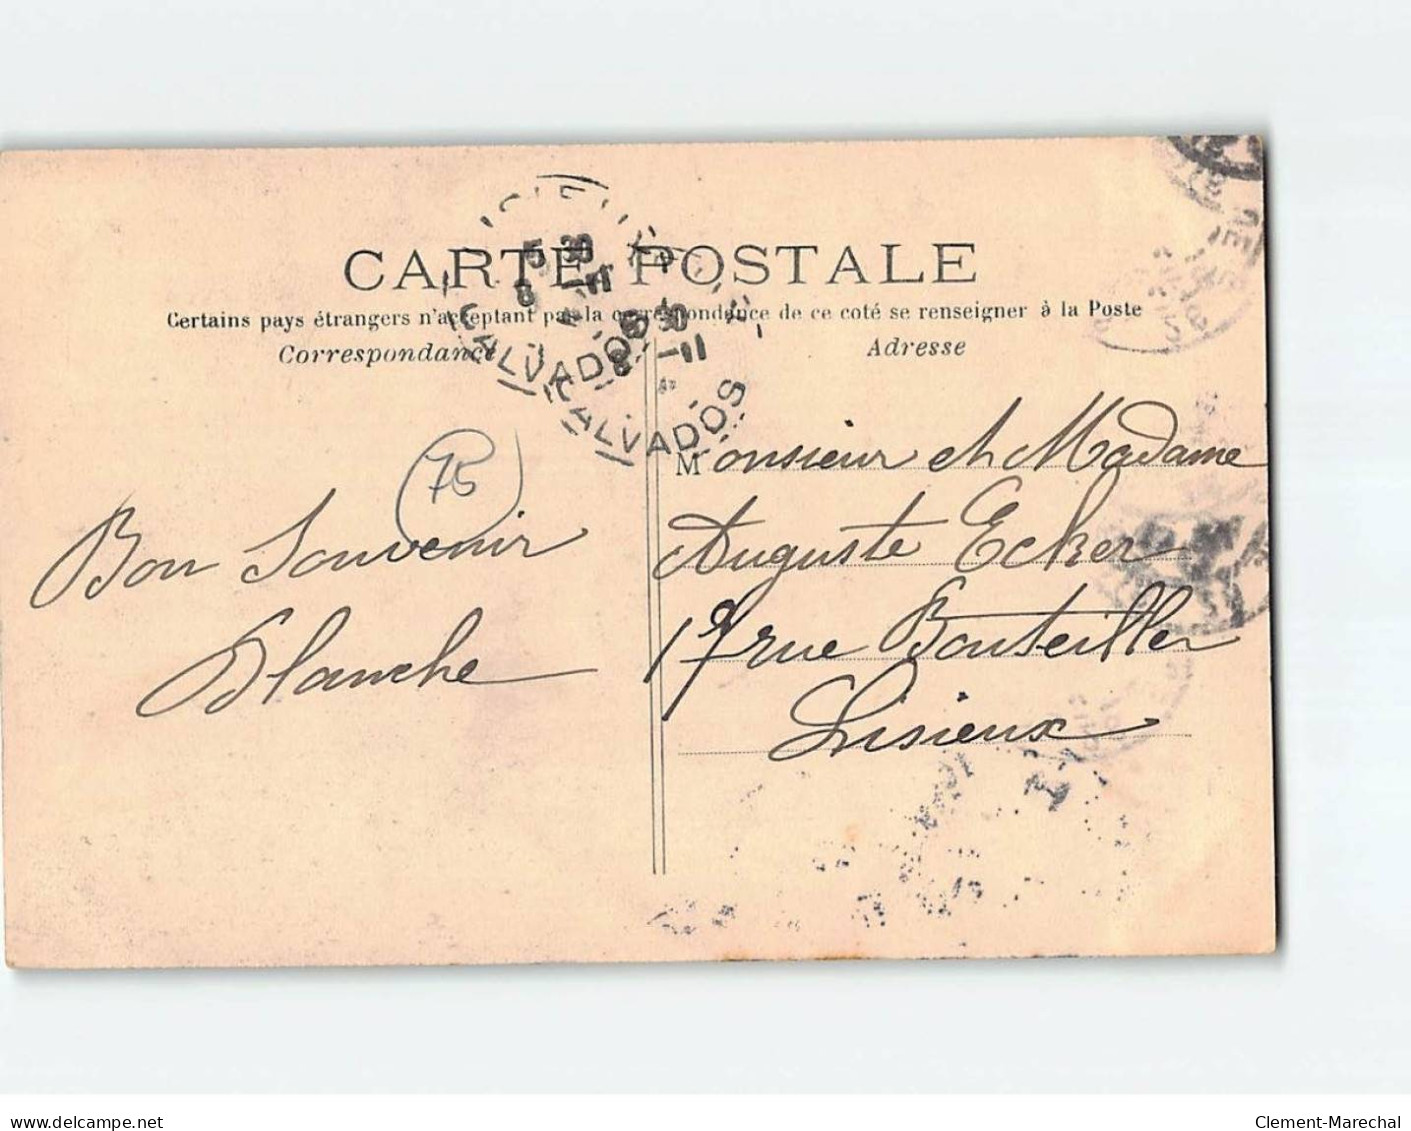 CARTE POSTALE
Certains pays étrangers n'acceptant pas la correspondance de ce coté se renseigner à la Poste
Correspondance
Adresse
LISIEUX
5 30
8 11
CALVADOS
5 30
8 11
CALVADOS
75
Bon Souvenir
Blanche
Monsieur et Madame
Auguste Ecker
17 rue Bouteiller
Lisieux
www.delcampe.net
Clement-Marechal